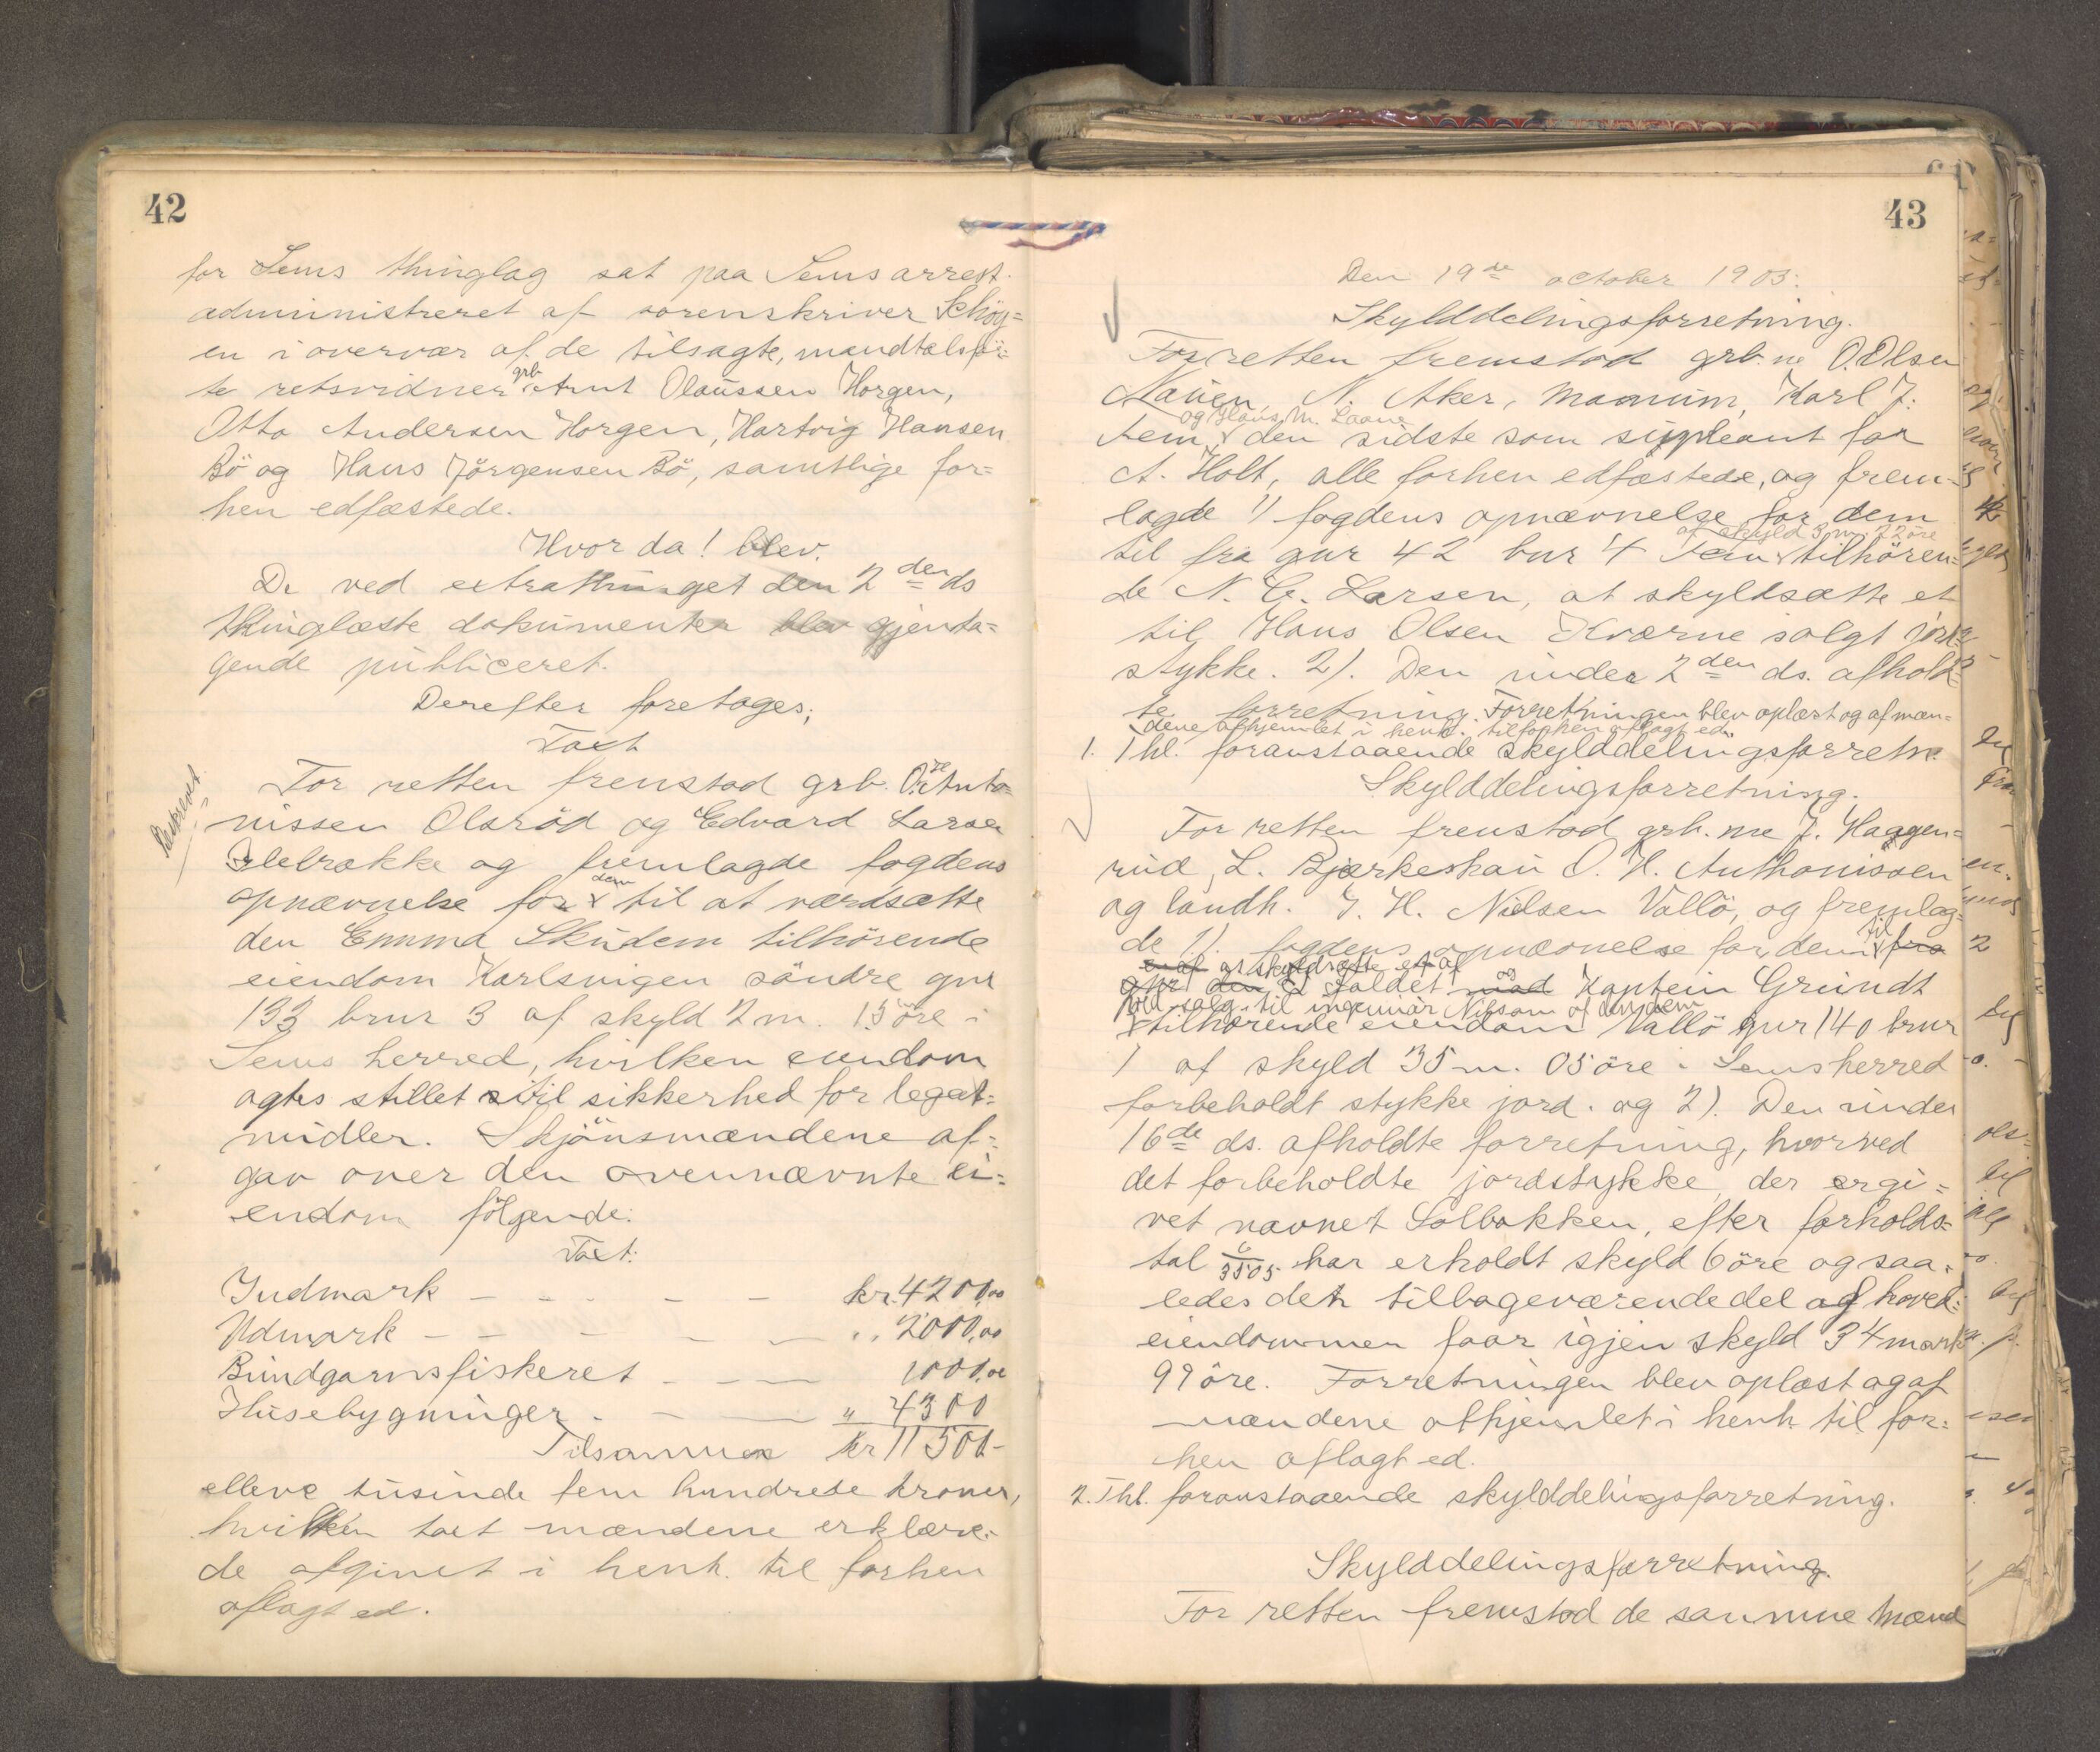 42
for Sems thinglag sat paa Sems arrest.
administreret af sorenskriver Schöy=
en i overvær af de tilsagte, mandtalsför=
te retsvidner grb Arnt Olaussen Horgen,
Otto Andersen Horgen, Hartvig Hansen
Bö og Hans Jörgensen Bö, samtlige for=
hen edfæstede.
Hvor da! blev.
De ved extrathinget den 2den ds
thinglæste dokumenter blev gjenta=
gende publiceret.
Derefter foretages;
Taxt
Beskrevet.
For retten fremstod grb. O. Anto=
nissen Olsröd og Edvard Larsen
Ilebrække og fremlagde fogdens
opnævnelse for dem til at værdsætte
den Emma Skudem tilhörende
eiendom Karlsvigen söndre gnr
133 brnr 3 af skyld 2 m. 15 öre i
Sems herred, hvilken eiendom
agtes stillet til sikkerhed for legat=
midler. Skjönsmændene af=
gav over den ovennævnte ei=
endom fölgende:
Taxt:
Indmark - - - - - kr. 4200,00
Udmark - - - - - " 2000,00
Bundgarnsfiskeret - - - 1000,00
Husebygninger - - - " 4300
Tilsammen kr 11500-
elleve tusinde fem hundrede kroner,
hvilken taxt mændene erklære=
de afgivet i henh. til forhen
aflagt ed.
43
Den 19de october 1903.
Skylddelingsforretning.
For retten fremstod grb. ne O. Olsen
Nauen, N. Aker, Manum, Karl J.
og Hans M. Laane
Jem, den sidste som supleant for
A. Holt, alle forhen edfæstede, og frem-
lagde 1) fogdens opnævnelse for dem
af skyld 3 m 22 öre
til fra gnr 42 bnr 4 Jem tilhören=
de N. C. Larsen, at skyldsætte et
til Hans Olsen Kværne solgt jord
stykke. 2). Den under 2den ds. afhold=
te forretning. Forretningen blev oplæst og af mæn=
dene afhjemlet i henh. til forhen aflagt ed.
1. Thl. foranstaaende skylddelingsforretn.
Skylddelingsforretning.
For retten fremstod grb. ne J. Haggen=
rud, L. Bjerkeskau O. H. Anthonissen
og landh. J. H. Nielsen Vallö, og fremlag=
de 1). fogdens opnævnelse for dem til fra
at skyldsætte et af
den foldet mad og Kaptein Grundt
ved salg til ingeniör Nilson af dennem
tilhörende eiendom Vallö gnr 140 brnr
1 af skyld 35 m. 05 öre i Semsherred
forbeholdt stykke jord. og 2). Den under
16de ds. afholdte forretning, hvorved
det forbeholdte jordstykke, der ergi=
vet navnet Solbakken, efter forholds=
tal 6/3505 har erholdt skyld 6 öre og saa-
ledes den tilbageværende del af hoved=
eiendommen faar igjen skyld 34 mark
99 öre. Forretningen blev oplæst og af
mændene afhjemlet i henh. til for=
hen aflagt ed.
2. Thl. foranstaaende skylddelingsforretning.
Skylddelingsforretning.
For retten fremstod de samme mænd